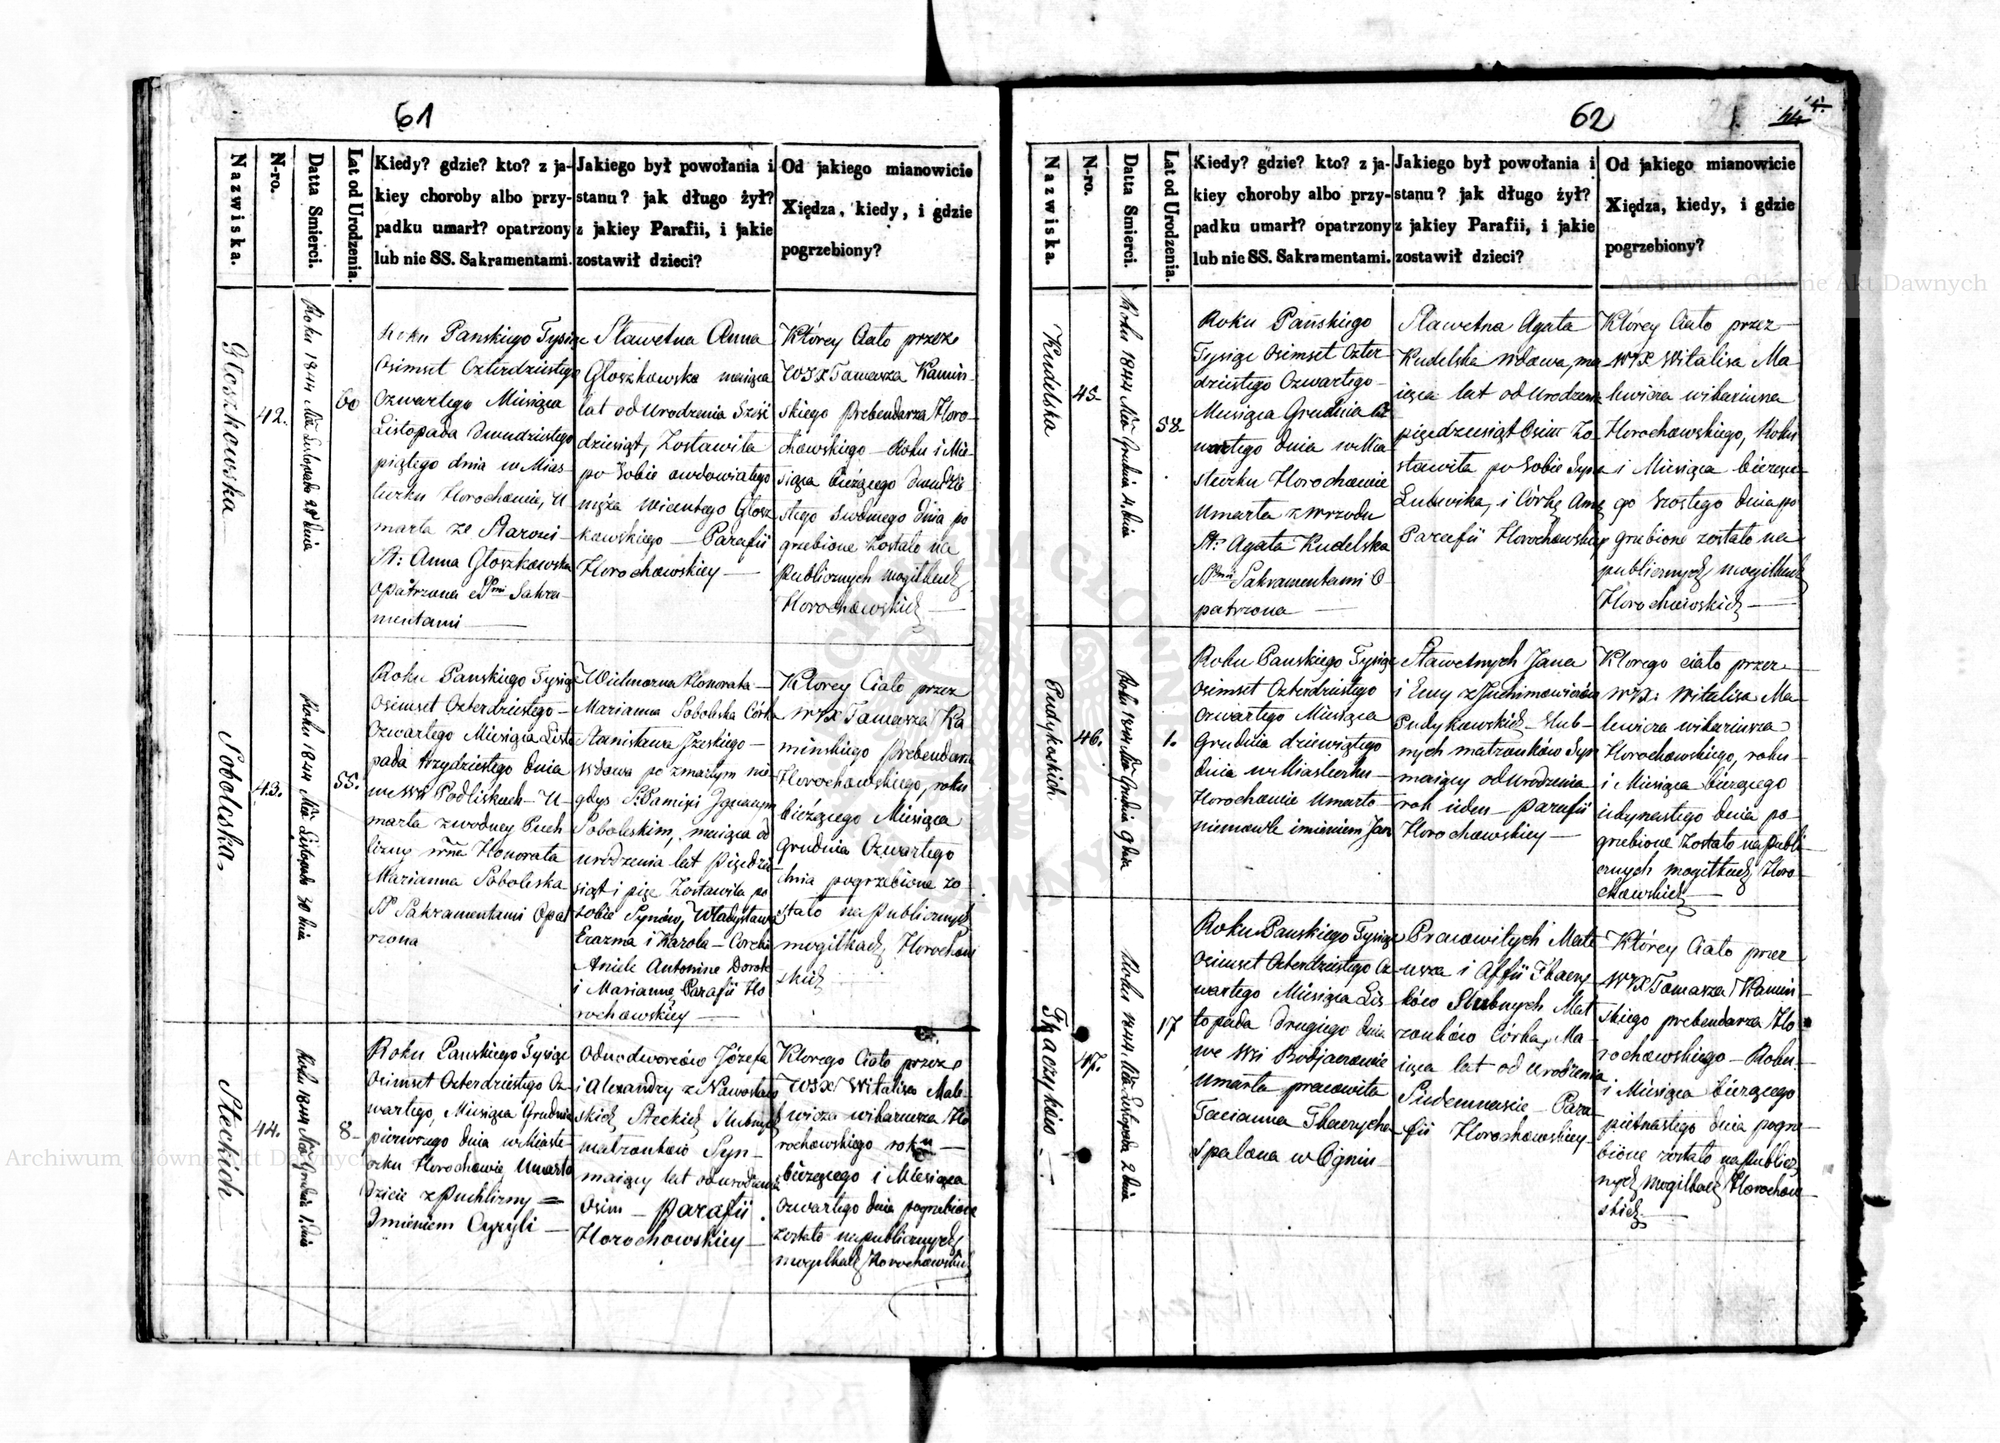 61
Nazwiska.
N-ro.
Datta Smierci.
Lat od Urodzenia.
Kiedy? gdzie? kto? z ja-
kiey choroby albo przy-
padku umarł? opatrzony
lub nie SS. Sakramentami.
Jakiego był powołania i
stanu? jak długo żył?
z jakiey Parafii, i jakie
zostawił dzieci?
Od jakiego mianowicie
Xiędza, kiedy, i gdzie
pogrzebiony?
Głoszkowska
42.
Roku 1844 Listopada dnia
60
Roku Panskiego Tysiąc
Osimset Czterdziestego
Czwartego Miesiąca
Listopada Dwudziestego
piątego dnia w Mias-
teczku Horochowie, U
marła ze Starosci
Sł: Anna Głoszkowska
Opatrzona Sakra
mentami
Sławetna Anna
Głoszkowska maiąca
lat od Urodzenia Sześć
dziesiąt, Zostawiła
po Sobie owdowiałego
męża Wicentego Głosz
kowskiego — Parafii
Horochowskiey —
Którey Ciało przez
WJX Tomasza Kamin-
skiego Prebendarza Horo-
chowskiego Roku i Mie-
siąca bieżącego Dwudzie
stego Siódmego Dnia po
grzebione Zostało na
publicznych mogiłkach
Horochowskich —
Sobolska.
43.
Roku 1844 Listopada 30 dnia
55.
Roku Panskiego Tysiąc
Osimset Czterdziestego —
Czwartego Miesiąca Listo
pada trzydziestego dnia
we Wsi Podliskach — U-
marła z wodney Puch
liny Honorata
Marianna Soboleska
Sakramentami Opat
rzona
Wielmożna Honorata —
Marianna Soboleska Córka
Stanisława
Wdowa po zmarłym nie
gdys Ignacym
Soboleskim, maiąca od
urodzenia lat Pięćdzie
siąt i pięć Zostawiła po
sobie Synów, Władysława
Erazma i Karola — Corcha
Aniele Antonine Dorote
i Mariannę Parafii Ho
rochowskiey —
Ktorey Ciało przez
WJX Tomasza Ka
minskiego Prebendarza
Horochowskiego, roku
bieżącego Miesiąca
Grudnia Czwartego
dnia pogrzebione zo-
stało na publicznych
mogiłkach Horochow
skich
Steckich
44.
Roku 1844 Grudnia 1. dnia
8-
Roku Panskiego Tysiąc
Osimset Czterdziestego Cz-
wartego, Miesiąca Grudnia
pierwszego dnia w Miaste-
czku Horochowie Umarło
Dziecie z Puchliny =
Imieniem Cyryli —
Odnodworców Józefa
i Alexandry z
skich Steckich Slubnych
matrzonków Syn —
maiący lat od urodzenia
Osim — parafii
Horochowskiey —
Ktorego Ciało przez
WJX Witalisa Male-
wicza wikariusza Ho
rochowskiego roku —
bieżącego i Miesiąca
Czwartego dnia pogrzebione
zostało na publicznych
mogiłkach Horochowskich
62
44
Nazwiska.
N-ro.
Datta Smierci.
Lat od Urodzenia.
Kiedy? gdzie? kto? z ja-
kiey choroby albo przy-
padku umarł? opatrzony
lub nie SS. Sakramentami.
Jakiego był powołania i
stanu? jak długo żył?
z jakiey Parafii, i jakie
zostawił dzieci?
Od jakiego mianowicie
Xiędza, kiedy, i gdzie
pogrzebiony?
Kudelska
45
Roku 1844 Grudnia 4. dnia
58-
Roku Pańskiego
Tysiąc Osimset Czter
dziestego Czwartego —
Miesiąca Grudnia Cz
wartego dnia w Mia
steczku Horochowie
Umarła z wrzodu
Sł: Agata Kudelska
Sakramentami O
patrzona —
Sławetna Agata
Kudelska wdowa, ma
iąca lat od Urodzenia
pięćdziesiąt Osim Zo-
stawiła po Sobie Syna
Ludwika, i Córkę Annę
Parafii Horochowskiey
Którey Ciało przez —
WJX Witalisa Ma-
lewicza wikariusza
Horochowskiego, Roku
i Miesiąca bieżące-
go Szostego Dnia po
grzebione zostało na
publicznych mogiłkach
Horochowskich —
Pudykoskich
46.
Roku 1844 Grudnia 9 dnia
1.
Roku Panskiego Tysiąc
Osimset Czterdziestego
Czwartego Miesiąca
Grudnia dziewiątego
Dnia w Miasteczku —
Horochowie Umarło —
niemowle imieniem Jan
Sławetnych Jana
i Ewy
Pudykowskich — Slub-
nych matrzonków Syn
maiący od Urodzenia
rok ieden — parafii
Horochowskiey —
Ktorego ciało przez —
WJX: Witalisa Ma-
lewicza wikariusza
Horochowskiego, roku —
i Miesiąca bieżącego
iedynastego dnia po-
grzebione Zostało na publi-
cznych mogiłkach Horo-
chowskich —
Tkaczyków. —
47.
Roku 1844. Listopada 2 dnia
17
Roku Panskiego Tysiąc
Osimset Czterdziestego Cz
wartego Miesiąca Lis-
topada Drugiego dnia
we Wsi
Umarła pracowita
Tacianna Tkaczycha
Spalona w Ogniu —
Pracowitych Mate
usza i Tkaczy
ków Slubnych Mat
rzonków Córka, Ma-
iąca lat od Urodzenia
Siedemnaście — Para
fii Horochowskiey
Którey Ciało przez
WJX Tomasza Kamin-
skiego prebendarza Ho-
rochowskiego — Roku
i Miesiąca bieżącego
piętnastego dnia pogrze
bione zostało na publicz
nych mogiłkach Horochow-
skich —
Archiwum Główne Akt Dawnych
Archiwum Główne Akt Dawnych